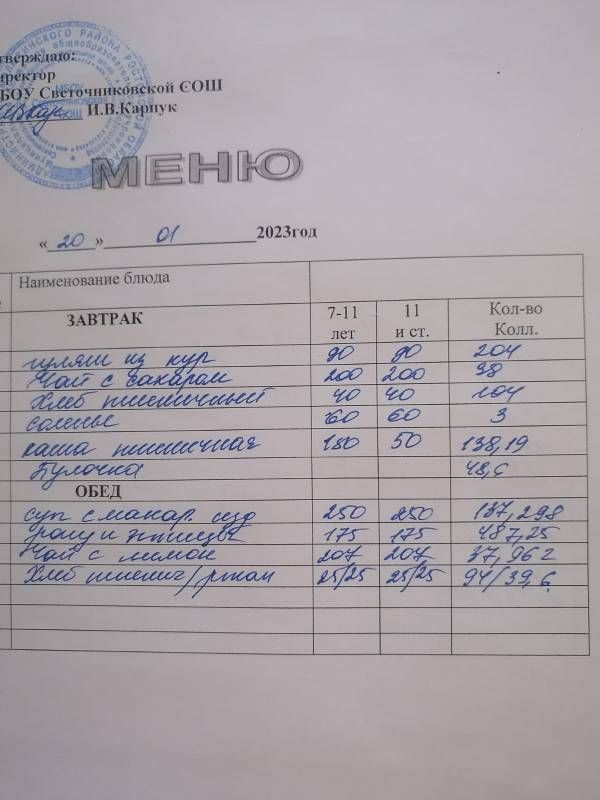 тверждаю:
иректор
БОУ Светочниковской СОШ
И.В.Карпук
МЕНЮ
« 20 » 01 2023год
Наименование блюда
ЗАВТРАК 7-11 лет 11 и ст. Кол-во Колл.
гуляш из кур 90 90 204
Чай с сахаром 200 200 38
Хлеб пшеничный 40 40 104
соленые 60 60 3
каша пшеничная 180 50 138,19
Булочка 48,6
ОБЕД
суп с макар. изд 250 250 137,298
рагу и птицы 175 175 487,25
Чай с лимон 207 207 37,962
Хлеб пшенич/ржан 25/25 25/25 94/39,6